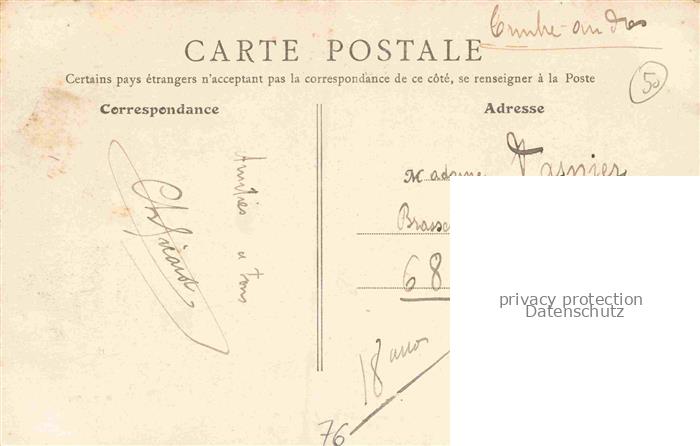 Timbre au dos
CARTE POSTALE
Certains pays étrangers n'acceptant pas la correspondance de ce côté, se renseigner à la Poste
50
Correspondance
Amitiés a tous
Adresse
Madame Vasnier
68
18
76
privacy protection
Datenschutz